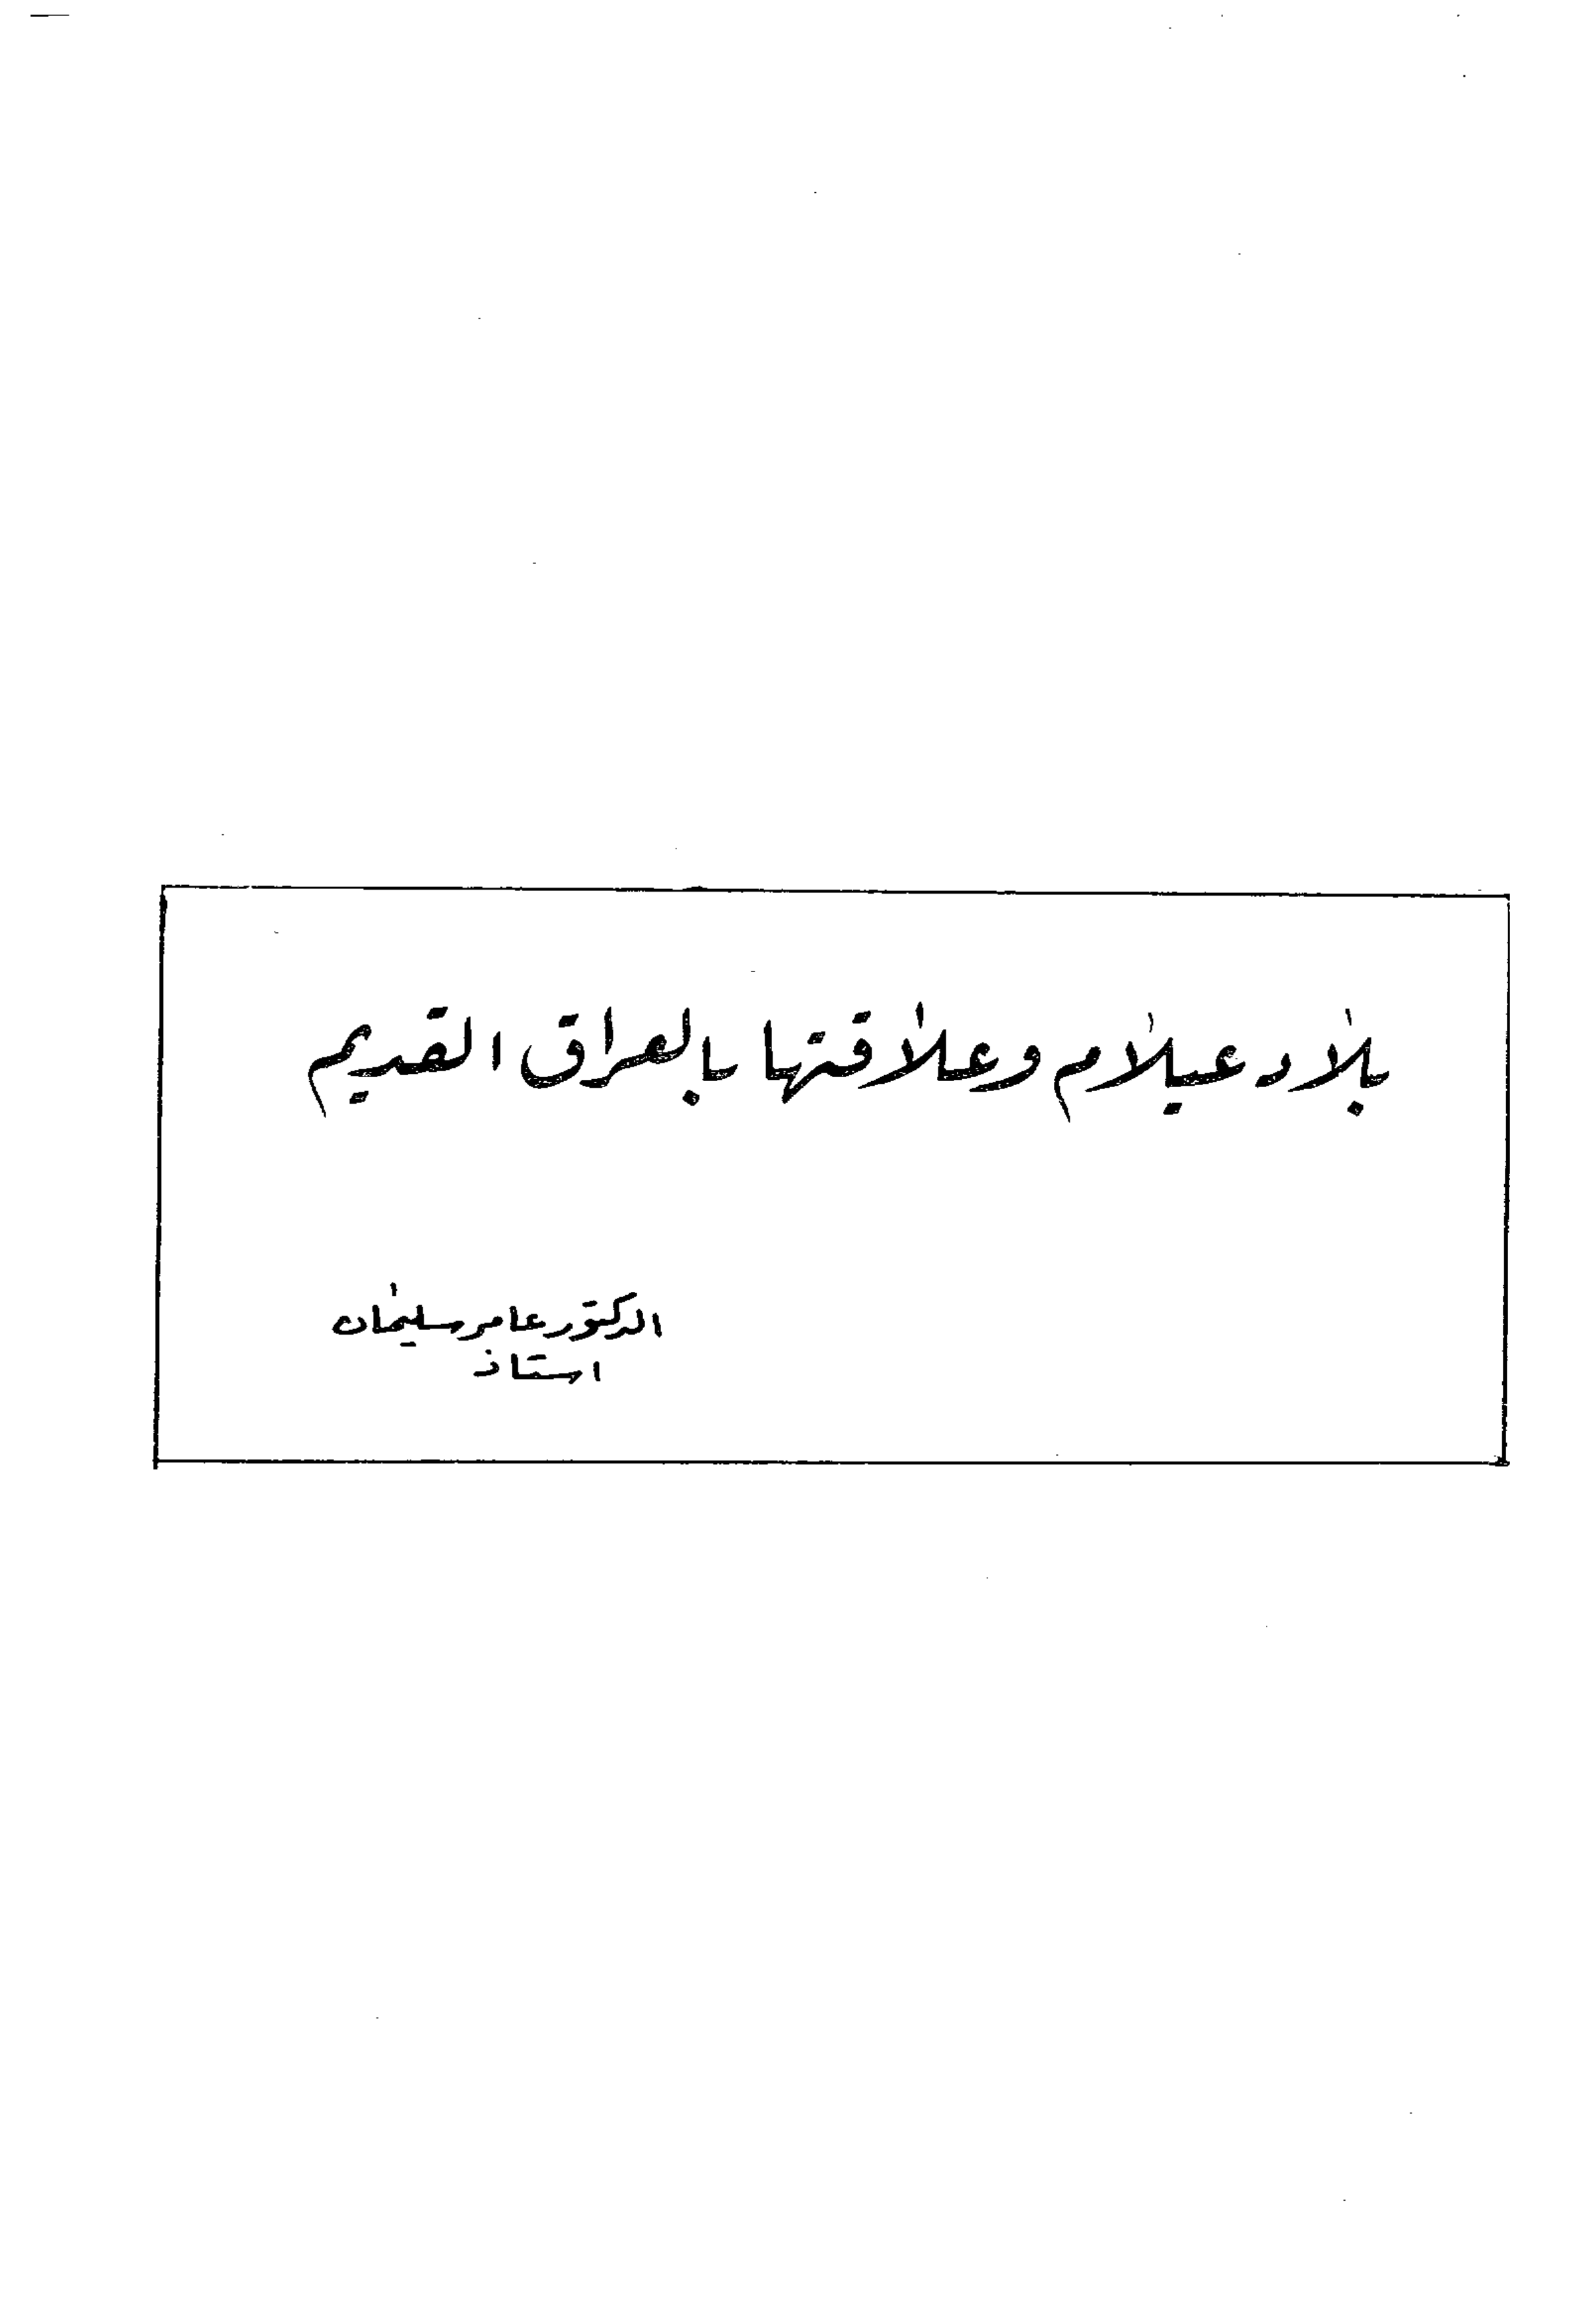 بلاد عيلام وعلاقتها بالعراق القديم
الدكتور عامر سليمان
استاذ